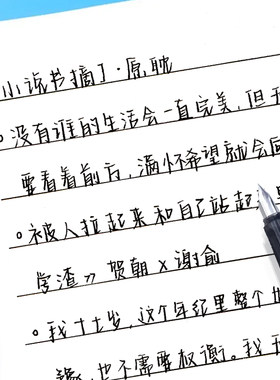 小说书摘丁·原耽
。没有谁的生活会一直完美,但无
要看着前方,满怀希望就会
。被人拉起来和自己站起
学渣》贺朝x谢俞
。我十七岁,这个年纪里整个世
缘,也不需要权衡。我